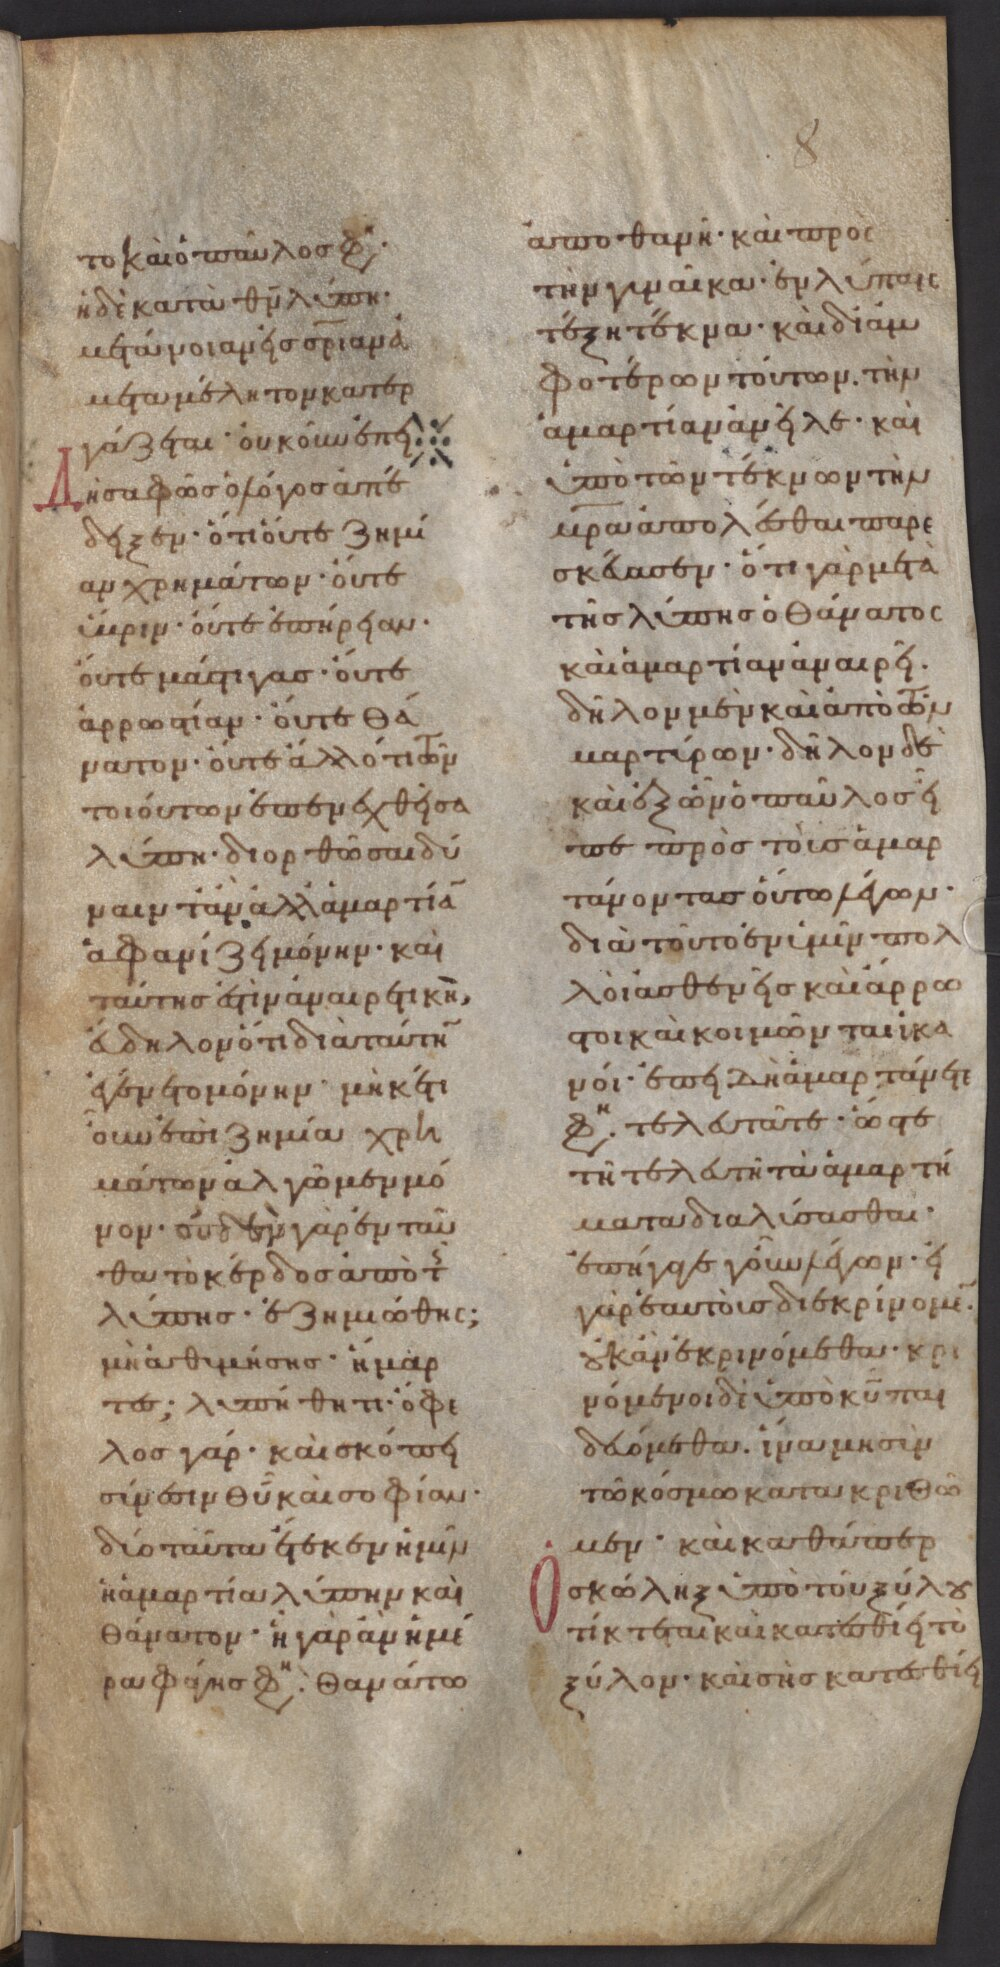 8
το καὶ ὁ παῦλος φη·
ἡ δὲ κατὰ θν λύπη·
μετάνοιαν εἰς σριαν ἀ
μεταμέλητον κατερ
γάζεται· οὐκοῦν ἐπει
Δὴ σαφῶς ὁ λόγος ἀπέ
δειξεν· ὅτι οὔτε ζημί
αν χρημάτων· οὔτε
ὕβριν· οὔτε ἐπήρειαν·
οὔτε μάστιγας· οὔτε
ἀρρωστίαν· οὔτε θά
νατον· οὔτε ἄλλό τι τῶν
τοιούτων ἐπενεχθεῖσα
λύπη· διορθῶσαι δύ
ναιτ ἂν ἀλλ ἁμαρτίαν
ἀφανίζει μόνην· καὶ
ταύτης ἐστὶν ἀναιρετικὴ,
εὔδηλον ὅτι διὰ ταύτην
ἐγένετο μόνην· μὴκέτι
οὖν ἐπὶ ζημία χρη
μάτων ἀλγῶμεν μό
νον· οὐδὲν γὰρ ἐνταῦ
θα τὸ κέρδος ἀπὸ τῆς
λύπης· ἐζημιώθης;
μὴ ἀθυμήσης· ἥμαρ
τες; λυπήθητι· ὄφε
λος γάρ· καὶ σκόπει
σύνεσιν θῦ καὶ σοφίαν·
δύο ταῦτα ἔτεκεν ἡμῖν
ἡ ἁμαρτία λύπην καὶ
θάνατον· ἧ γὰρ ἂν ἡμέ
ρα φάγης φη· θανάτω
ἀποθανῆ· καὶ πρὸς
τὴν γυναῖκα· ἐν λύπαις
τέξη τέκνα· καὶ δι ἀμ
φοτέρων τούτων. τὴν
ἁμαρτίαν ἀνεῖλε· καὶ
ὑπὸ τῶν τέκνων τὴν
μρα ἀπολέσθαι παρε
σκεύασεν· ὅτι γὰρ μετὰ
τῆς λύπης ὁ θάνατος
καὶ ἁμαρτίαν ἀναιρεῖ.
δῆλον μὲν καὶ ἀπὸ τῶν
μαρτύρων· δῆλον δὲ
καὶ ἐξ ὧν ὁ παῦλος εἶ
πε πρὸς τοὺς ἁμαρ
τάνοντας οὕτω λέγων·
διὰ τοῦτο ἐν ὑμῖν πολ
λοὶ ἀσθενεῖς καὶ ἄρρω
στοι καὶ κοιμῶνται ἱκα
νοί· ἐπειδὴ ἁμαρτάνετε
φη· τελευτᾶτε· ὥστε
τῆ τελευτῆ τὰ ἁμαρτή
ματα διαλύσασθαι·
ἐπήγαγε γοῦν λέγων· εἰ
γὰρ ἑαυτοὺς διεκρίνομεν.
οὐκ ἂν ἐκρινόμεθα· κρι
νόμενοι δὲ ὑπὸ κῦ παι
δευόμεθα. ἵνα μη σὺν
τῶ κόσμω κατακριθῶ
μεν· καὶ καθάπερ
Ὁ σκώληξ ὑπὸ τοῦ ξύλου
τίκτεται καὶ κατεσθίει τὸ
ξύλον· καὶ σὴς κατεσθίει